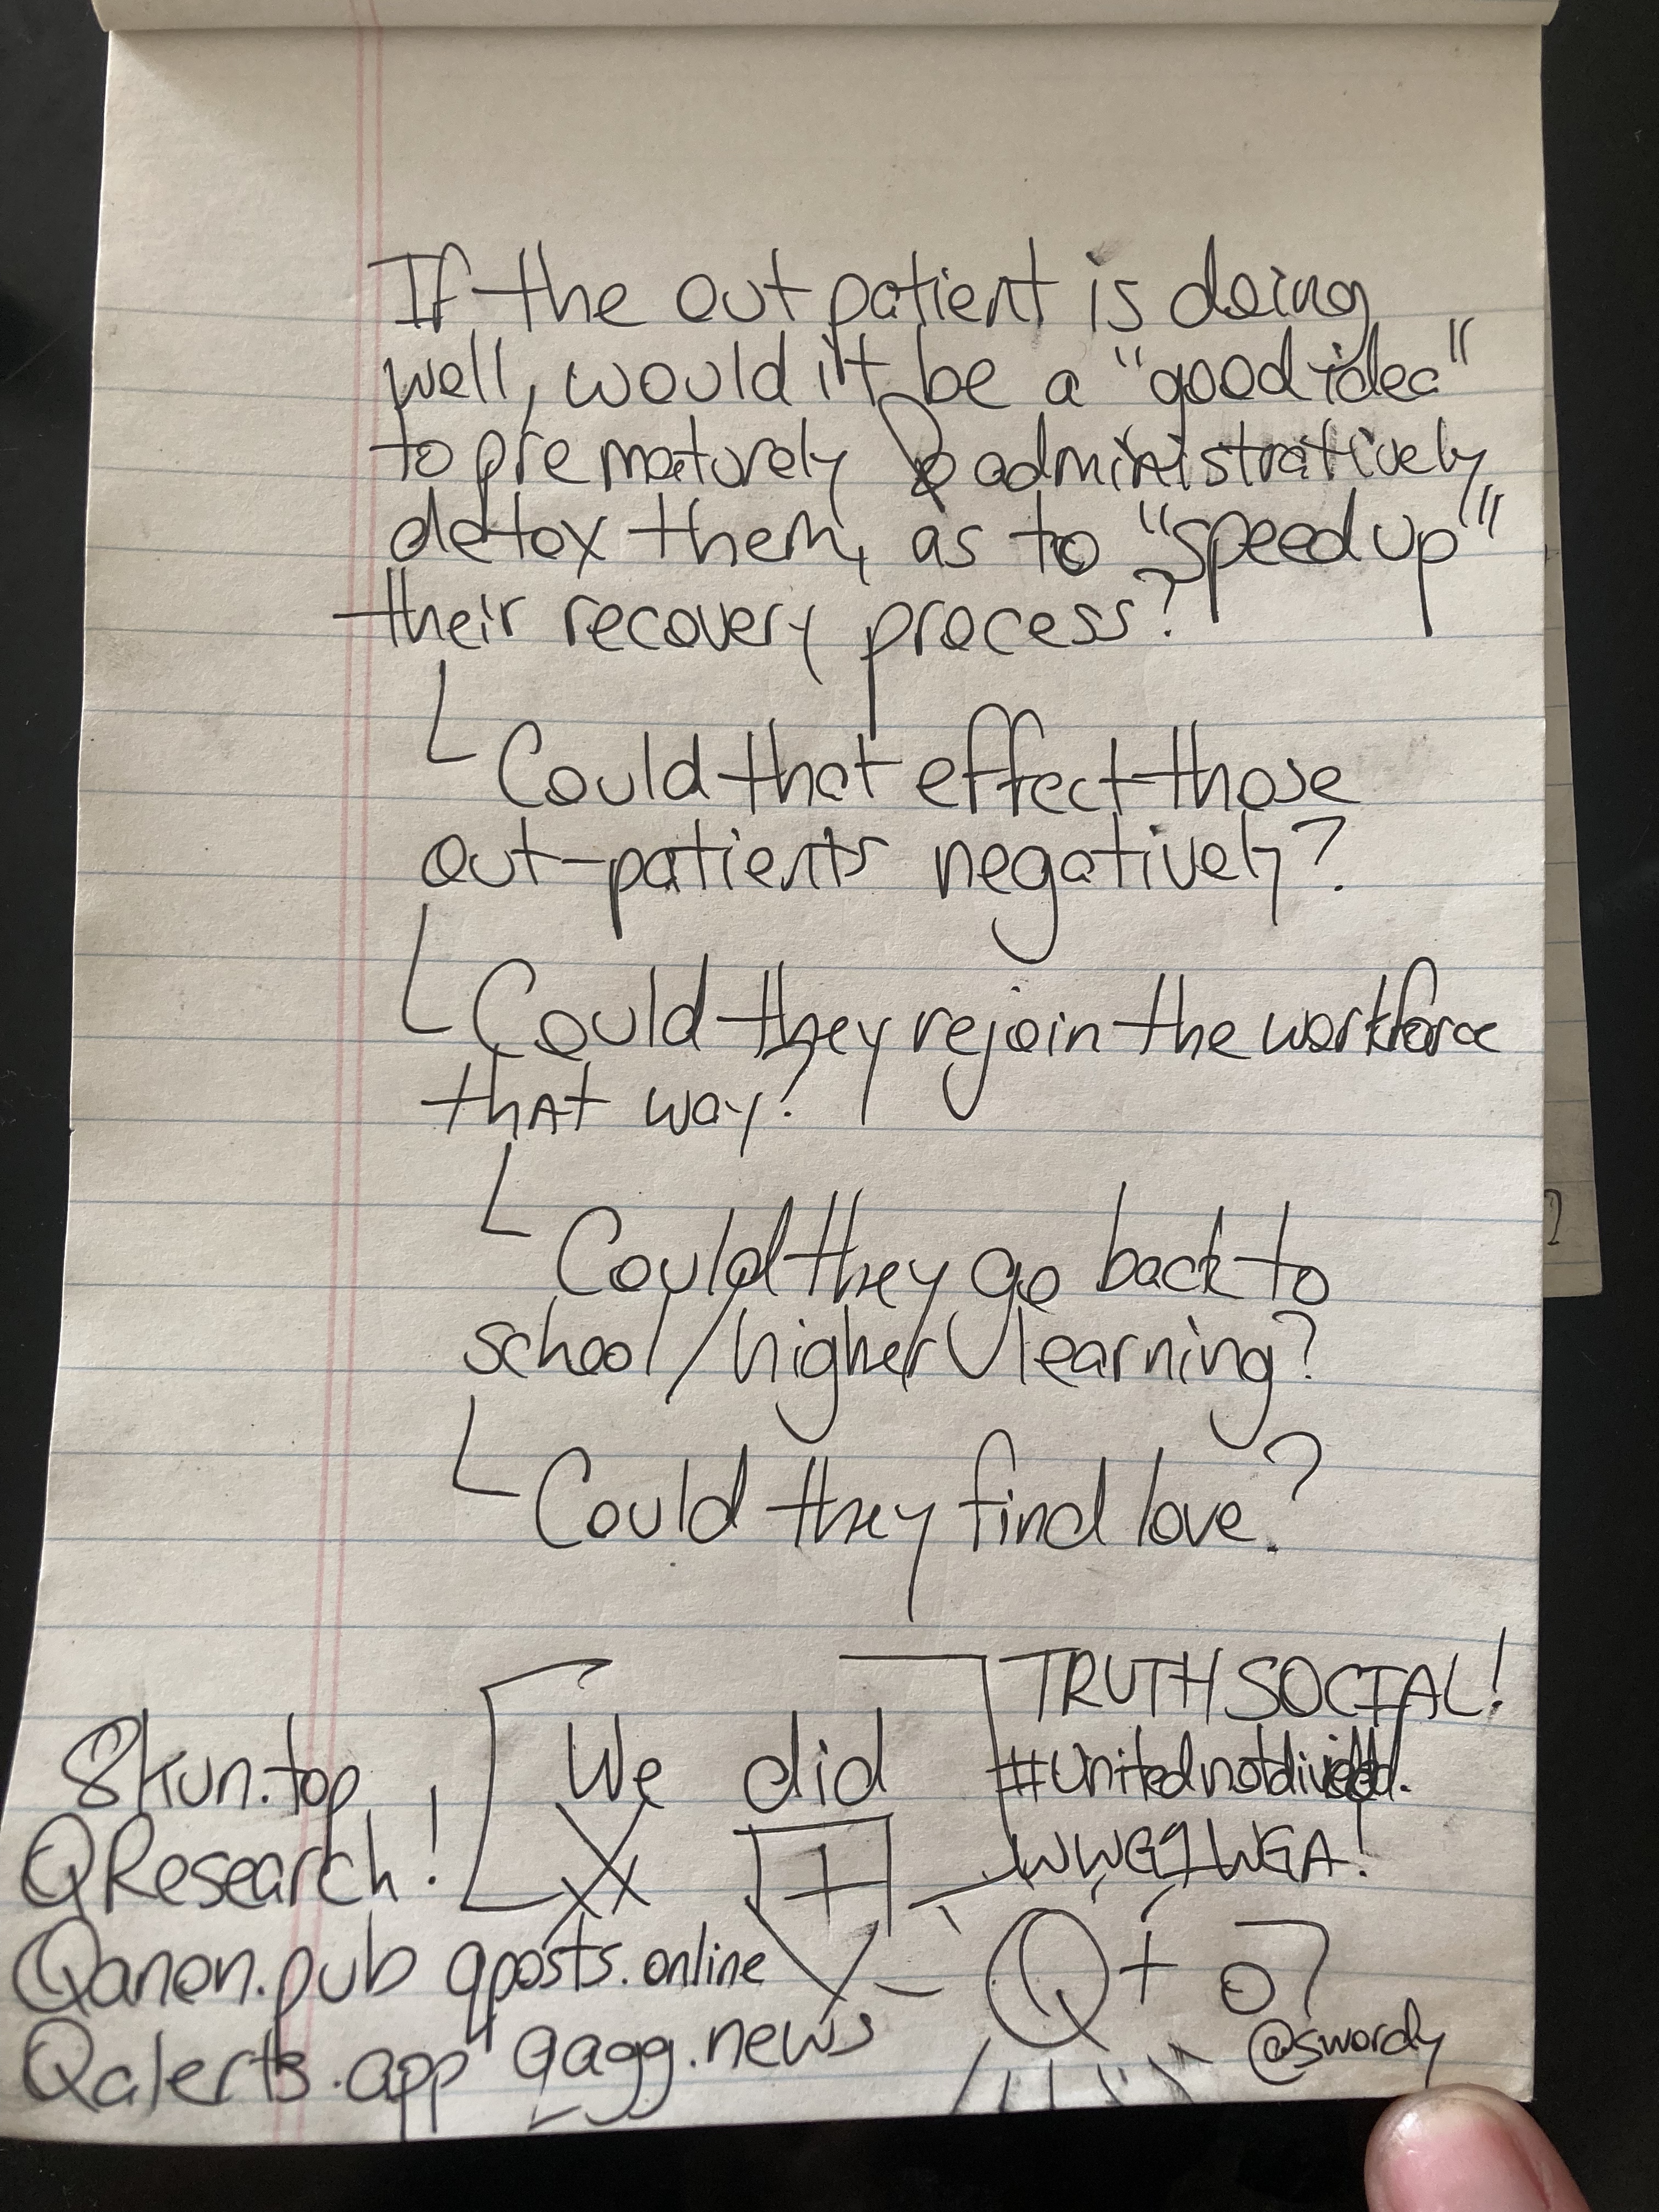 If the out patient is doing
well, would it be a "good idea"
to prematurely & administratively
detox them, as to "speed up"
their recovery process?
Could that effect those
out-patients negatively?
Could they rejoin the workforce
that way?
Could they go back to
school/higher learning?
Could they find love?
We did
TRUTH SOCIAL!
#Unitednotdivided.
WWG1WGA!
8kun.top
QResearch!
Qanon.pub qposts.online
Qalerts.app qagg.news
Q+
@swordy